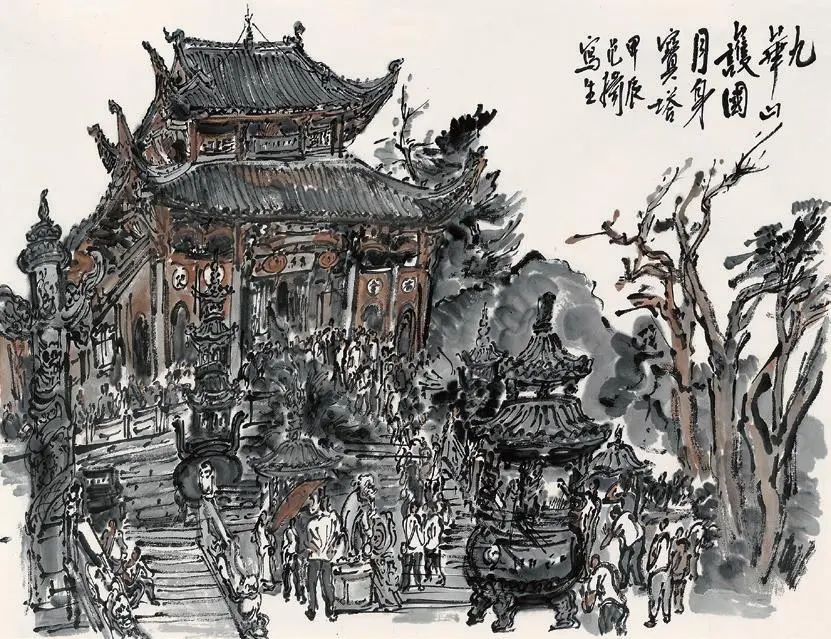 九
華山
護國
月身
寶塔
甲辰
寫生